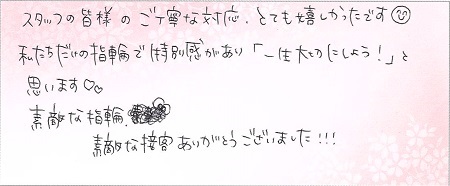 スタッフの皆様のご丁寧な対応、とても嬉しかったです☺
私たちだけの指輪で特別感があり「一生大切にしよう!」と
思います♡♡
素敵な指輪、
素敵な接客ありがとうございました!!!